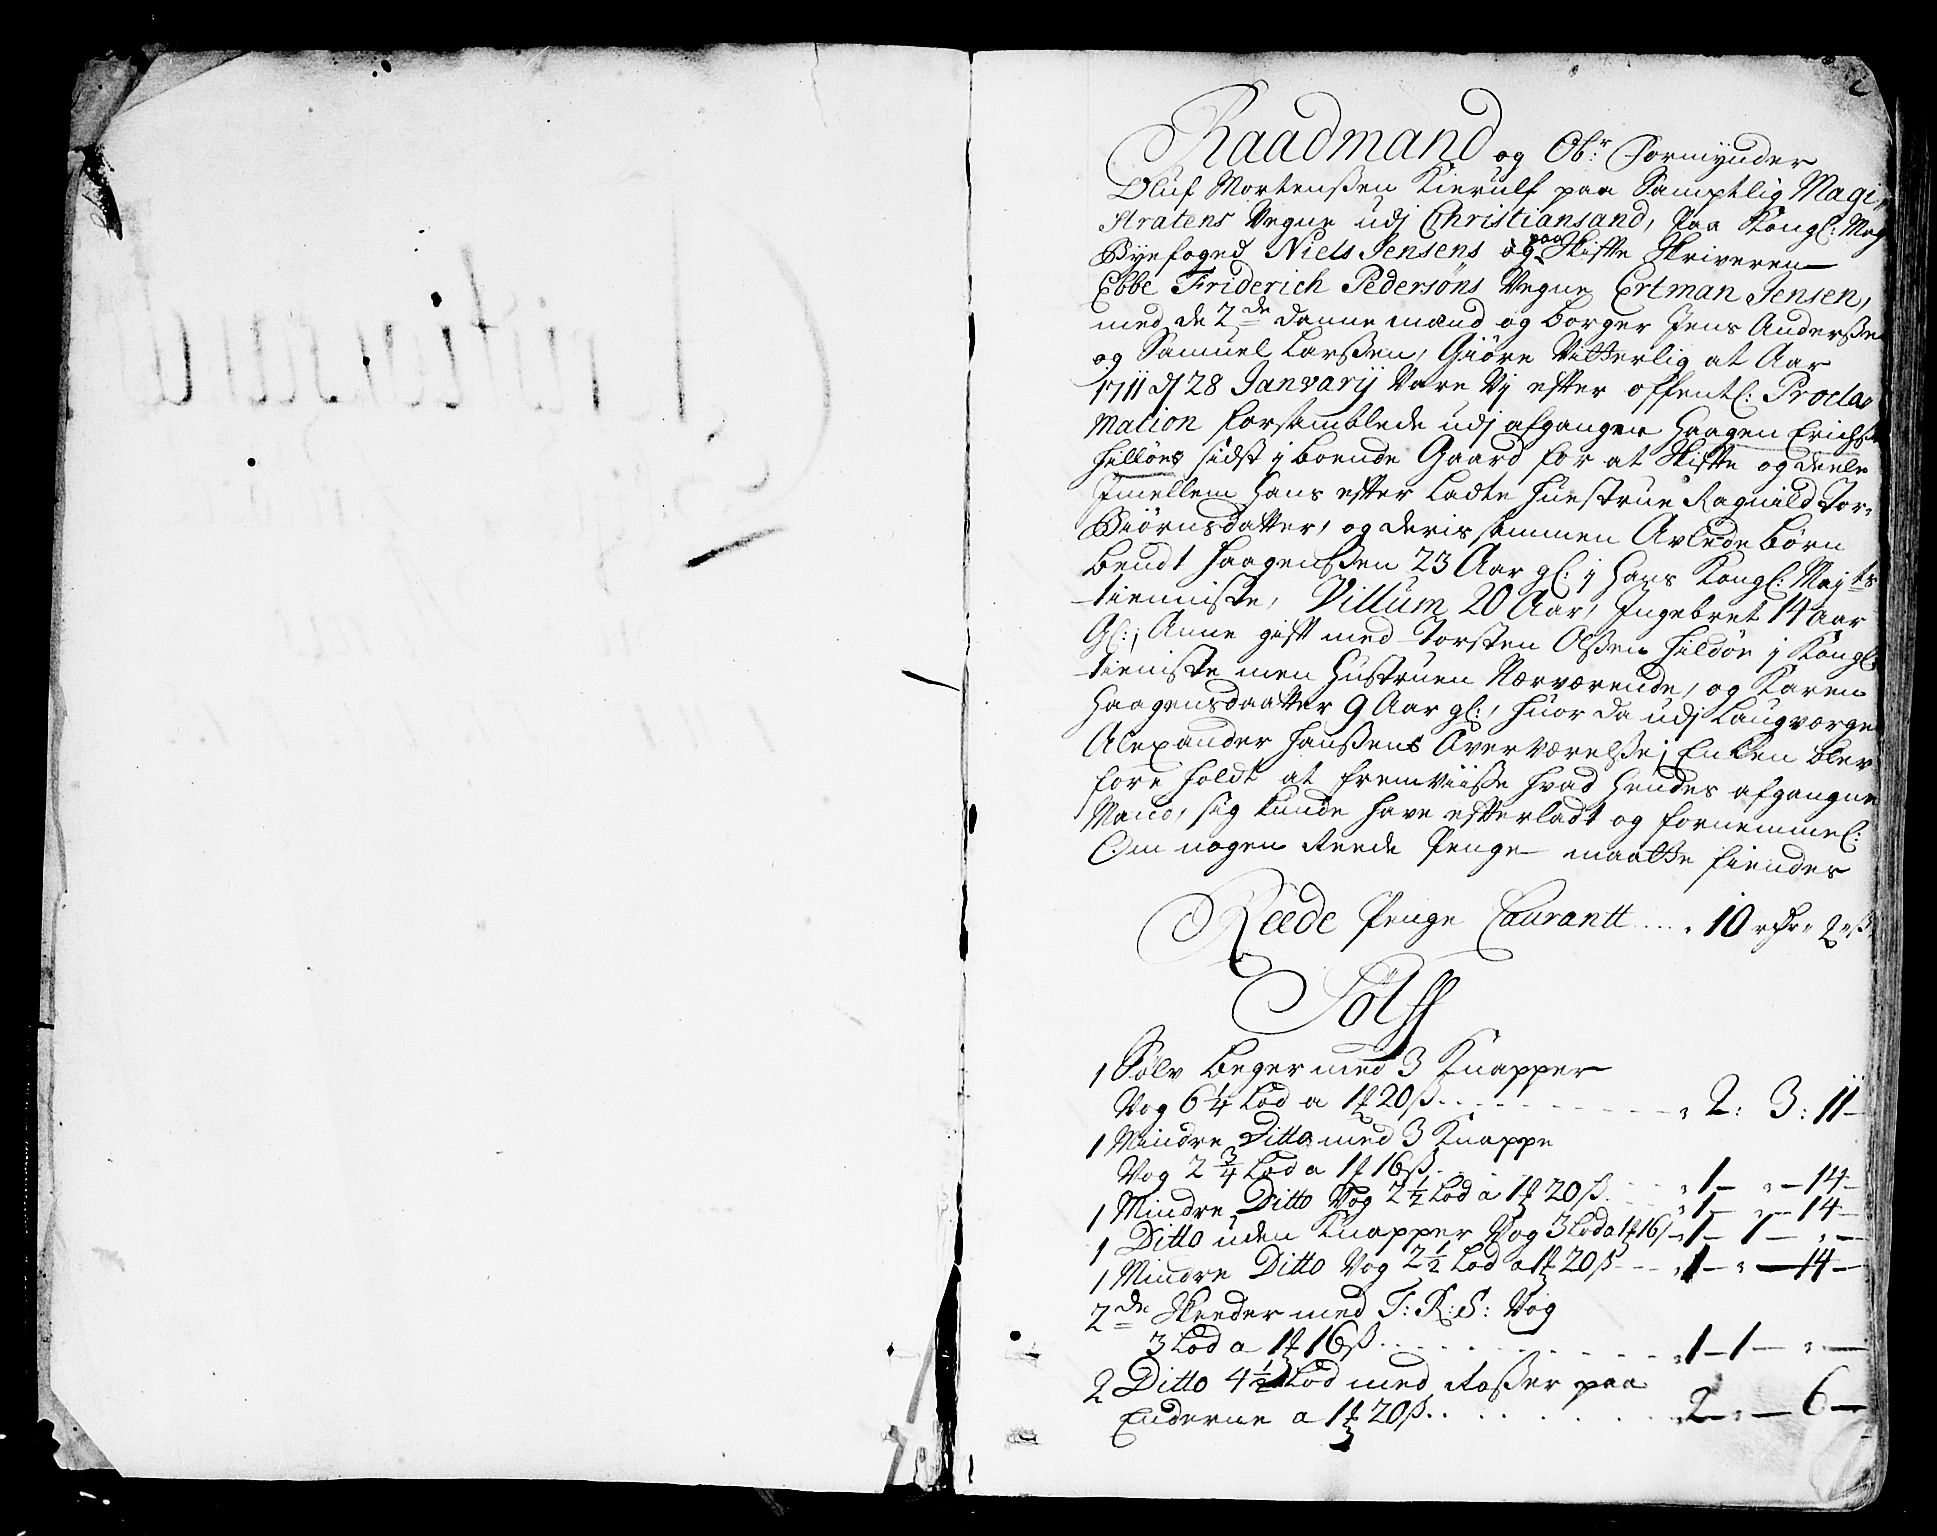 2
Raadmand og Ob:r Formÿnder
Oluf Mortenßen Kierulf paa Samptlig Magi,
stratens Vegne udj Christiansand, Paa Kongl: May
Bÿefoged Niels Jensens og paa Skifte Skriveren
Ebbe Friderich Pedersøns Vegne Ertman Jensen,
med de 2de Danne mænd og Borger Jens Anderße
og Samuel Larßen, Giøre Vitterlig at Aar
1711 d 28 Janvarij Vare Vj efter offentl: Procla,
mation forsamblede udj afgangen Haagen Erichß
Hilløes sidst i boende Gaard for at Skifte og deele
Imellem Hans efter Ladte Huestrue Ragnild Tor,
Biørnsdatter, og deris sammen Avlede Børn
Bendt Haagenßen 23 Aar gl: j Hans Kongl: Mayts
tienniste, Villum 20 Aar, Ingebret 14 Aar
Gl:, Anne gift med Torsten Olßen Hildøe j Kongl:
tieniste men Hustruen Nærværende, og Karen
Haagensdaatter 9 Aar gl:, Huor da udj Laugværge
Alexander Hanßens Overværelße; Enken blev
fore Holdt at fremviiße Hvad Hendes afgangne
Mand, sig kunde have efterladt og fornemmel:
Om nogen Reede Penge maatte fiendes
Reede Penge Courantt .... 10 rdr 2 ß
Sølff
1 Sølv Beger med 3 Knapper
Vog 6 1/4 Lod a 1 ʒ 20 ß ........ 2: 3: 11
1 Mindre Ditto med 3 Knappe
Vog 2 3/4 Lod a 1 ʒ 16 ß .. 1 — „ — 14
1 Mindre Ditto Vog 2 1/2 Lod a 1 ʒ 20 ß ... 1 — „ — 14
1 Ditto uden Knapper Vog 3 Lod a 1 ʒ 16 ß 1 — 1 — „ —
1 Mindre Ditto Vog 2 1/2 Lod a 1 ʒ 20 ß --- 1 — „ — 14
2de Skeeder med T: R: S: Vog
3 Lod a 1 ʒ 16 ß ........ 1 — 1 — „ —
2 Ditto 4 1/2 Lod med Roßer paa
Enderne a 1 ʒ 20 ß ...... 2 — „ — 6